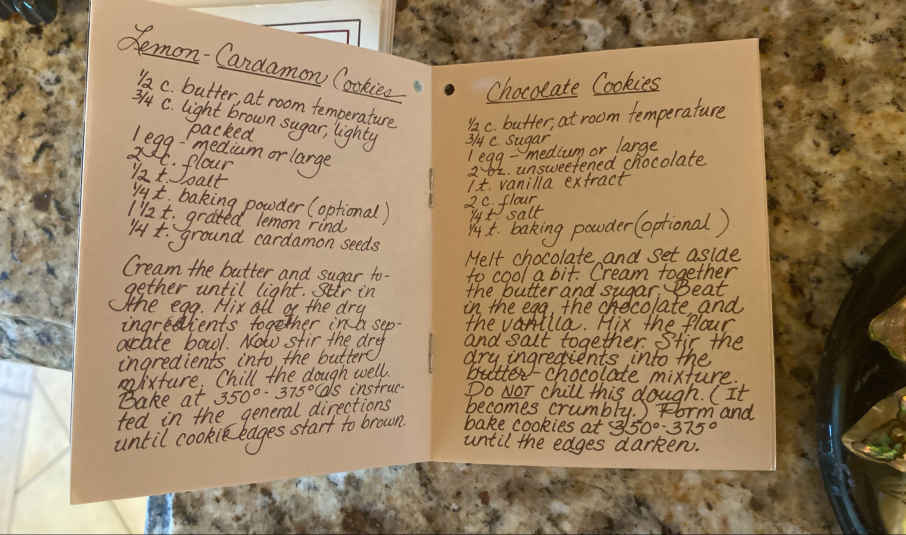 Lemon-Cardamon Cookies
1/2 c. butter, at room temperature
3/4 c. light brown sugar, lighty
packed
1 egg - medium or large
2 c. flour
1/2 t. salt
1/4 t. baking powder (optional)
1 1/2 t. grated lemon rind
1/4 t. ground cardamon seeds
Cream the butter and sugar to-
gether until light. Stir in
the egg. Mix all of the dry
ingredients together in a sep-
arate bowl. Now stir the dry
ingredients into the butter
mixture. Chill the dough well.
Bake at 350°-375° as instruc-
ted in the general directions
until cookie edges start to brown.
Chocolate Cookies
1/2 c. butter, at room temperature
3/4 c. sugar
1 egg - medium or large
2 oz. unsweetened chocolate
1 t. vanilla extract
2 c. flour
1/4 t. salt
1/4 t. baking powder (optional)
Melt chocolate and set aside
to cool a bit. Cream together
the butter and sugar. Beat
in the egg, the chocolate and
the vanilla. Mix the flour
and salt together. Stir the
dry ingredients into the
butter chocolate mixture.
Do NOT chill this dough. (It
becomes crumbly.) Form and
bake cookies at 350°-375°
until the edges darken.